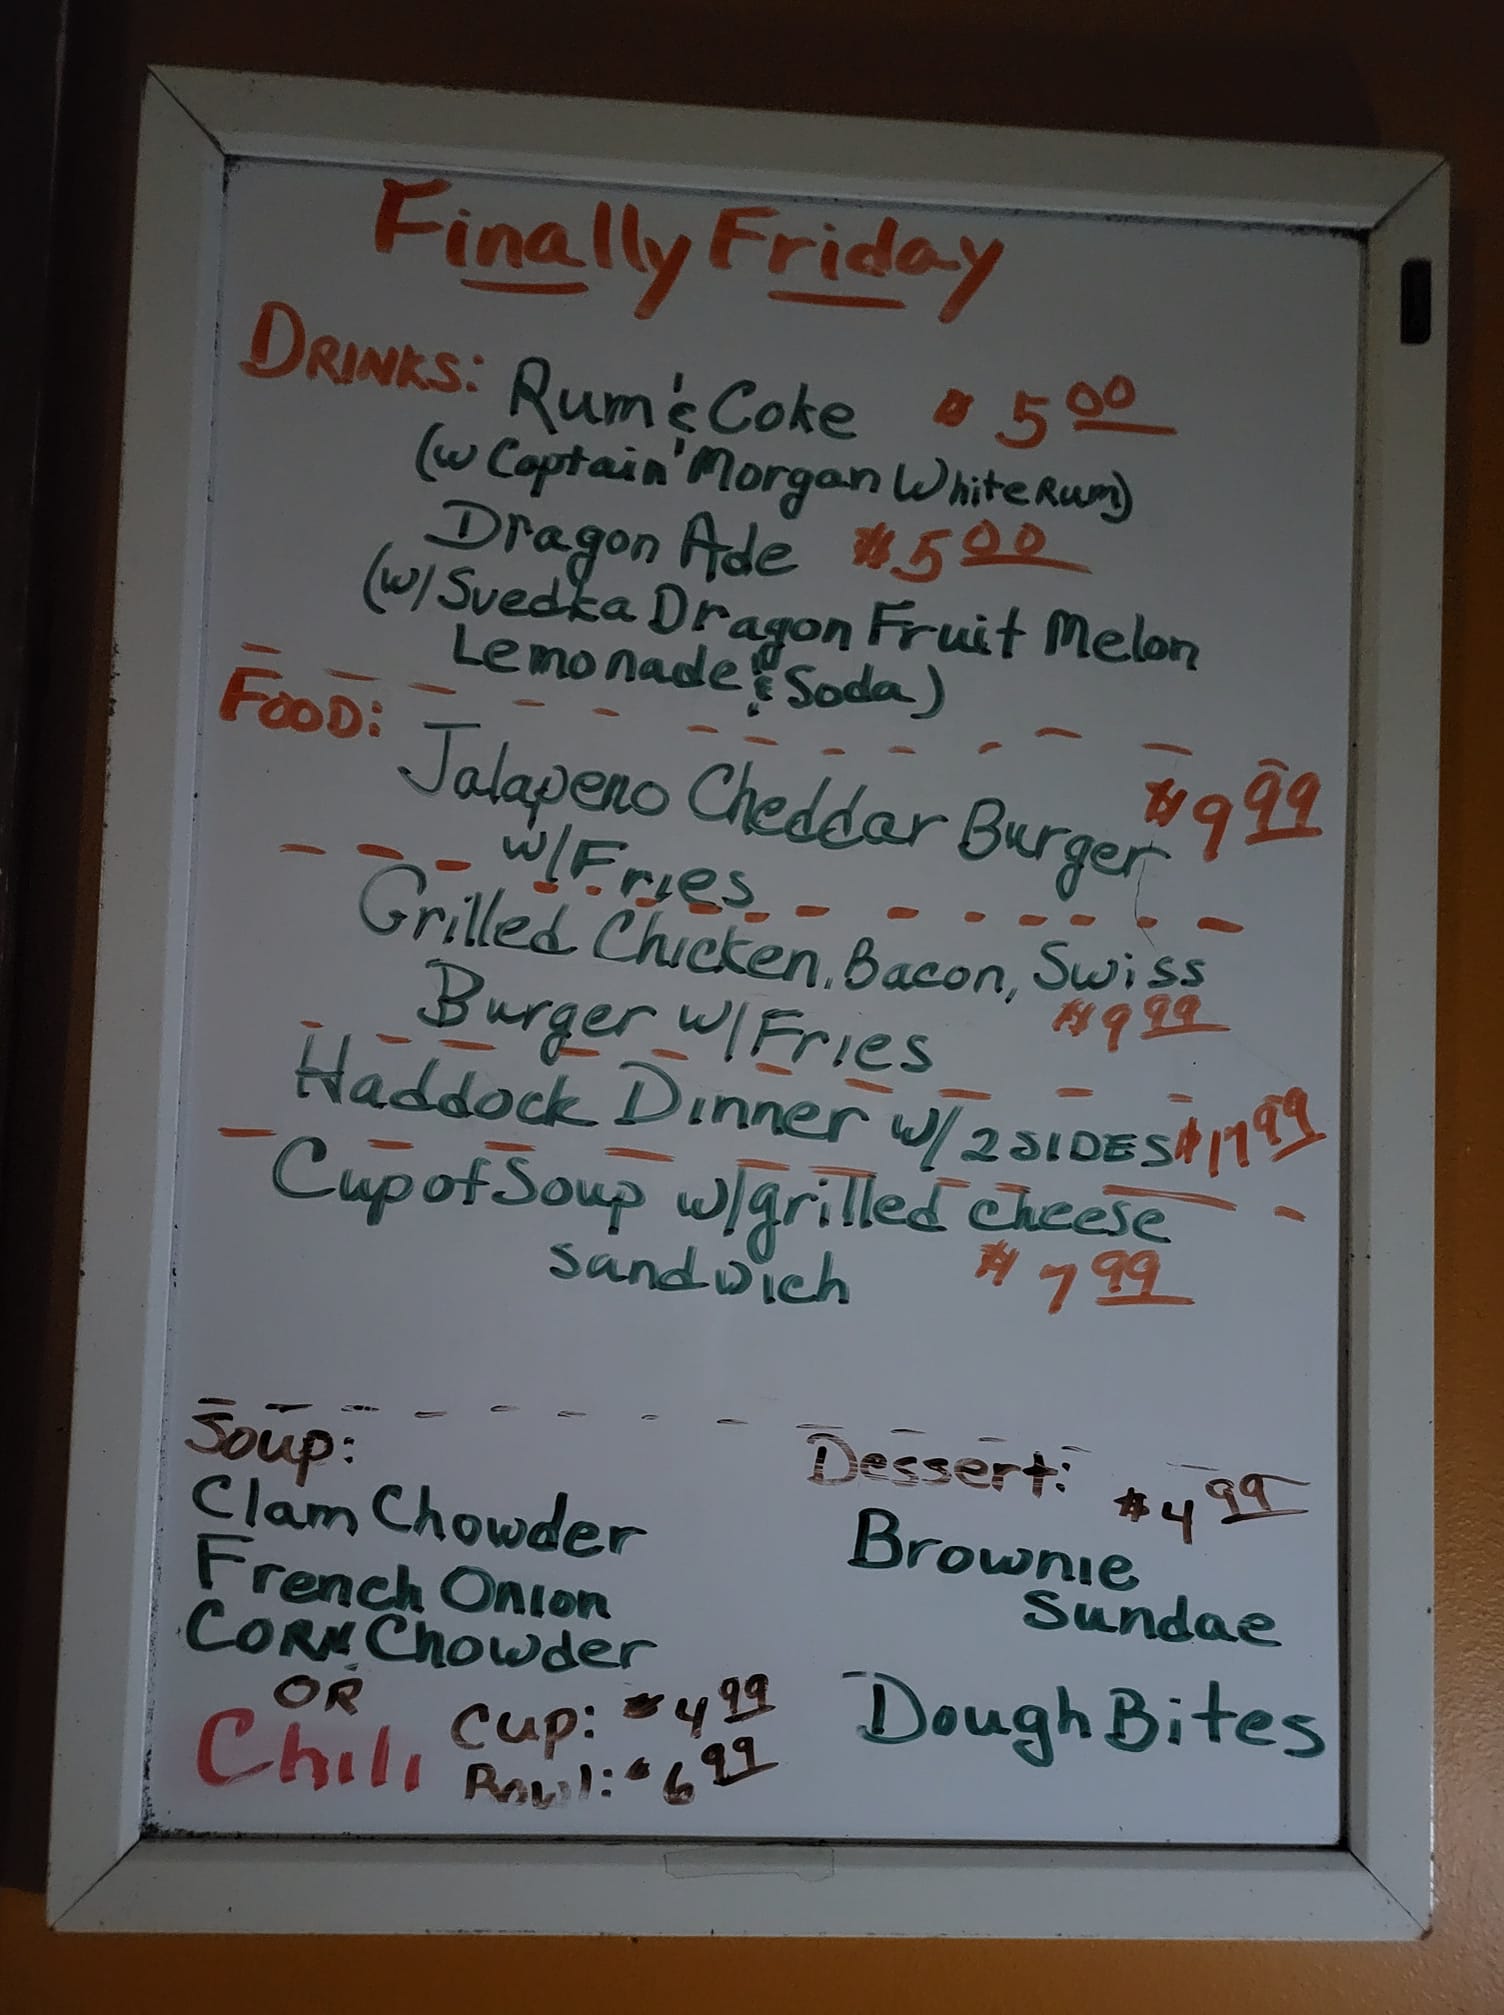 Finally Friday
DRINKS: Rum & Coke $5.00
(w Captain Morgan White Rum)
Dragon Ade $5.00
(w/ Svedka Dragon Fruit Melon
Lemonade & Soda)
FOOD: Jalapeno Cheddar Burger $9.99
w/Fries
Grilled Chicken, Bacon, Swiss
Burger w/Fries $9.99
Haddock Dinner w/ 2 SIDES $17.99
Cup of Soup w/grilled cheese
sandwich $7.99
Soup:
Clam Chowder
French Onion
CORN Chowder
OR
Chili
Cup: $4.99
Bowl: $6.99
Dessert: $4.99
Brownie
Sundae
Dough Bites